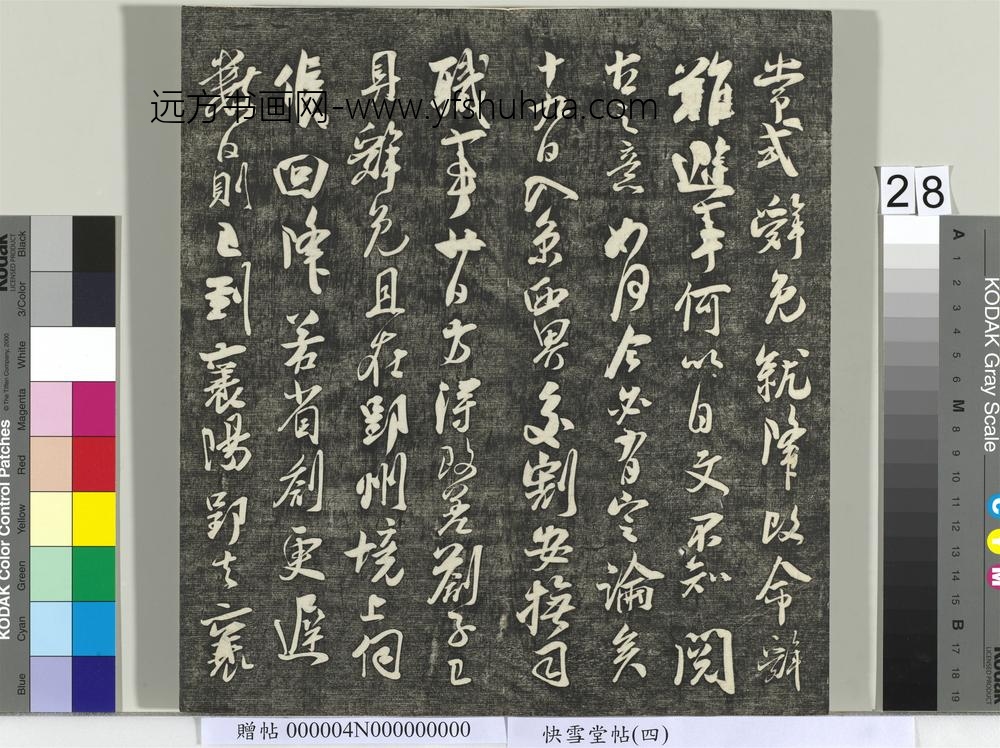 常式辭免就降改命辭
難避事何以自文不知閱
古之意如何今必有定論矣
日入京西界交割安撫司
職事廿日方得改差劄子已
具辭免且在郢州境上伺
候回降若省劄更遲
數日則已到襄陽郢去襄
远方书画网-www.yfshuhua.com
28
贈帖 000004N000000000
快雪堂帖(四)
Kodak
LICENSED PRODUCT
KODAK Color Control Patches
© The Tiffen Company, 2000
Blue Cyan Green Yellow Red Magenta White 3/Color Black
KODAK Gray Scale
A 1 2 3 4 5 6 M 8 9 10 11 12 13 14 15 B 17 18 19
C Y M
Kodak
LICENSED PRODUCT